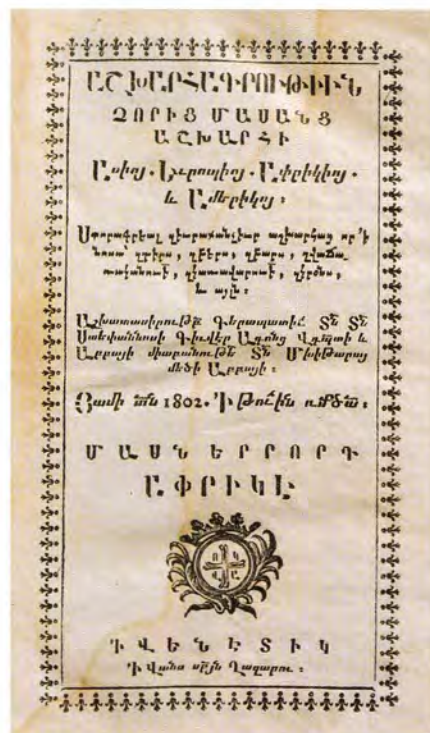 ԱՇԽԱՐՀԱԳՐՈՒԹԻՒՆ
ՉՈՐԻՑ ՄԱՍԱՆՑ
ԱՇԽԱՐՀԻ
Ասիոյ . Եւրոպիոյ . Ափրիկիոյ .
և Ամերիկոյ ։
Ստորագրեալ զիւրաքանչիւր աշխարհաց որ՚ի
նոսա՝ զդիրս , զբերս , զբարս , զվաճա֊
ռականութի , զկառավարութի , զկրօնս ,
և այլն ։
Աշխատասիրութբ Գերապատիւ Տն Տն
Ստեփաննոսի Գիւվեր Ագոնց Վրդպտի և
Աբբայի միաբանութեն Տն Մխիթարայ
մեծի Աբբայի ։
Յամի տն 1802. ՚Ի թուին ռմծա ։
ՄԱՍՆ ԵՐՐՈՐԴ
ԱՓՐԻԿԷ
Ո Կ
Վ Ա
Ի ՎԵՆԵՏԻԿ
՚Ի Վանս սրբյն Ղազարու ։